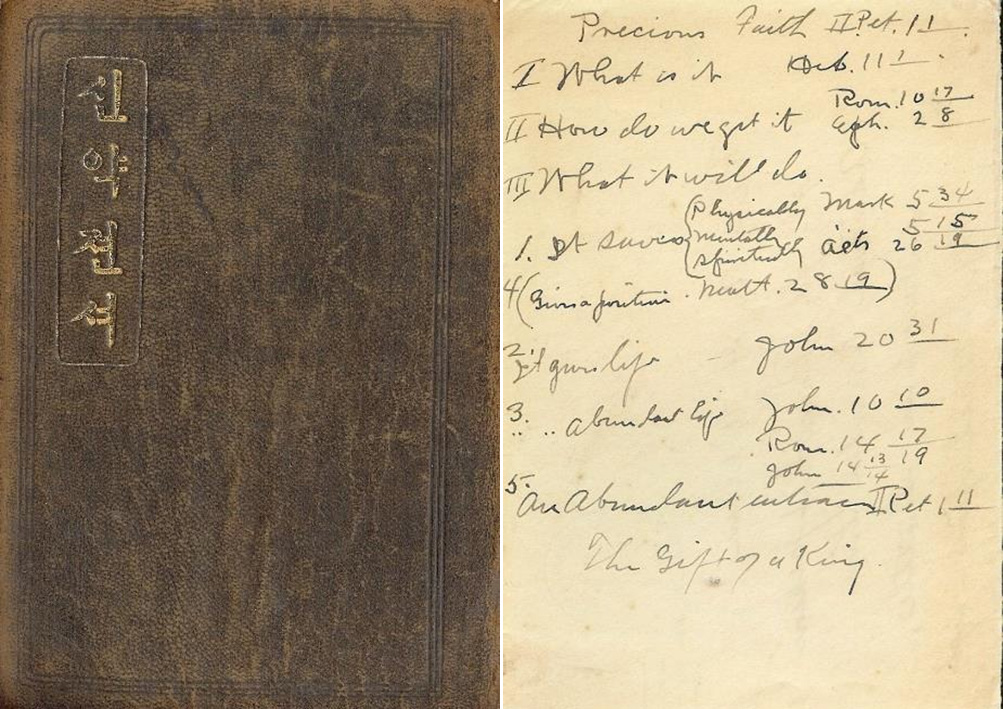 신약젼셔
Precious Faith II Pet. 1 1.
I What is it Heb. 11 1.
II How do we get it Rom. 10 17
Eph. 2 8
III What it will do.
1. It saves Physically Mark 5 34
Mentally 5 15
Spiritually Acts 26 19
4 (Gives a position. Matt. 28 19)
2. It gives life - John 20 31
3. " " abundant life John. 10 10
Rom. 14 17 19
John 14 13 14
5. An Abundant entrance II Pet 1 11
The Gift of a King.